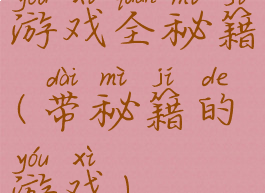 yóu xì quán mì jí
游戏全秘籍
dài mì jí de
(带秘籍的
yóu xì
游戏)